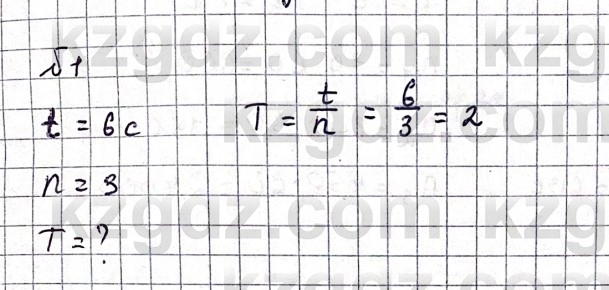 №1
t = 6 c
n = 3
T = ?
T = t/n = 6/3 = 2
kzgdz.com kzg
kzgdz.com kzg
kzgdz.com kzg